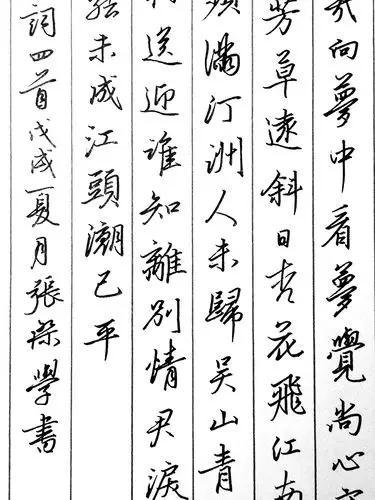 向夢中看夢覺尚心
芳草遠斜日杏花飛江南
蘋滿汀洲人未歸吳山青
送迎誰知離別情君淚
結未成江頭潮已平
詞四首戊戌夏月張學書